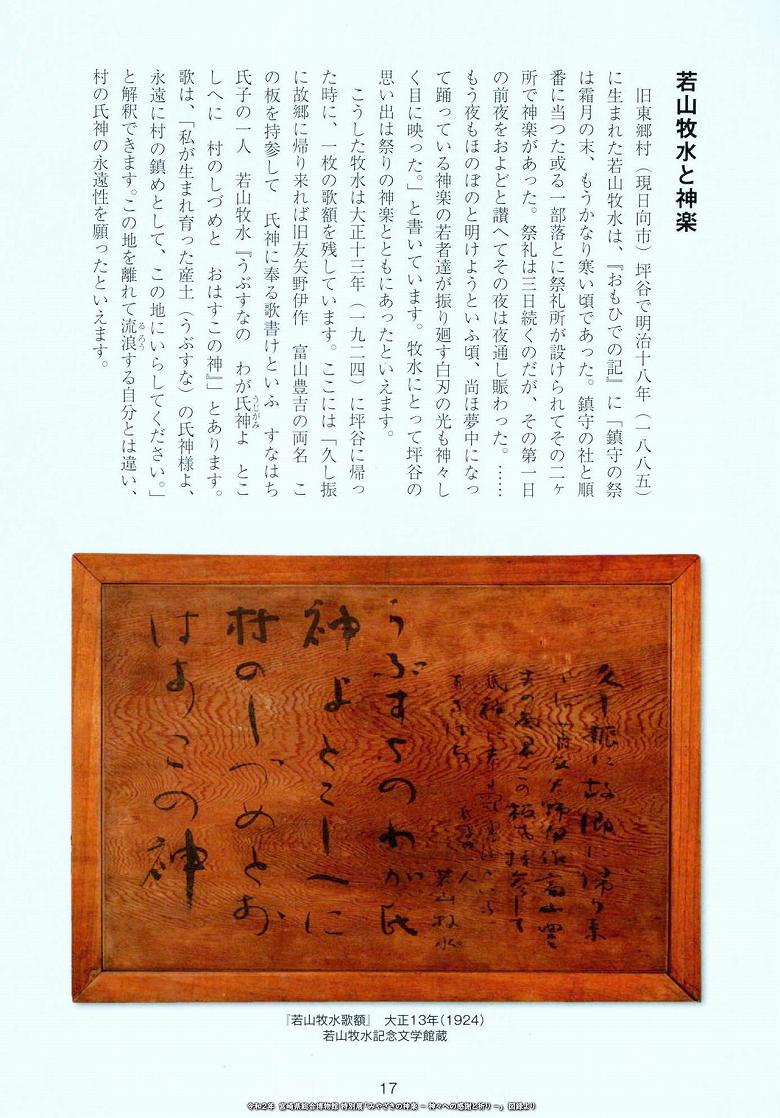 若山牧水と神楽
旧東郷村（現日向市）坪谷で明治十八年（一八八五）
に生まれた若山牧水は、『おもひでの記』に「鎮守の祭
は霜月の末、もうかなり寒い頃であった。鎮守の社と順
番に当つた或る一部落とに祭礼所が設けられてその二ヶ
所で神楽があった。祭礼は三日続くのだが、その第一日
の前夜をおよどと讃へてその夜は夜通し賑わった。……
もう夜もほのぼのと明けようといふ頃、尚ほ夢中になっ
て踊っている神楽の若者達が振り廻す白刃の光も神々し
く目に映った。」と書いています。牧水にとって坪谷の
思い出は祭りの神楽とともにあったといえます。
こうした牧水は大正十三年（一九二四）に坪谷に帰っ
た時に、一枚の歌額を残しています。ここには「久し振
に故郷に帰り来れば旧友矢野伊作　富山豊吉の両名　こ
の板を持参して　氏神に奉る歌書けといふ　すなはち
氏子の一人　若山牧水『うぶすなの　わが氏神よ　とこ
しへに　村のしづめと　おはすこの神』」とあります。
歌は、「私が生まれ育った産土（うぶすな）の氏神様よ、
永遠に村の鎮めとして、この地にいらしてください。」
と解釈できます。この地を離れて流浪する自分とは違い、
村の氏神の永遠性を願ったといえます。
うじがみ
るろう
久し振に故郷に帰り来
この板を持参して
氏子の一人
若山牧水
うぶすなのわが氏
神よとこしへに
村のしづめとお
はすこの神
『若山牧水歌額』　大正13年（1924）
若山牧水記念文学館蔵
17
令和2年 宮崎県総合博物館 特別展「みやざきの神楽 － 神々への感謝と祈り －」 図録より